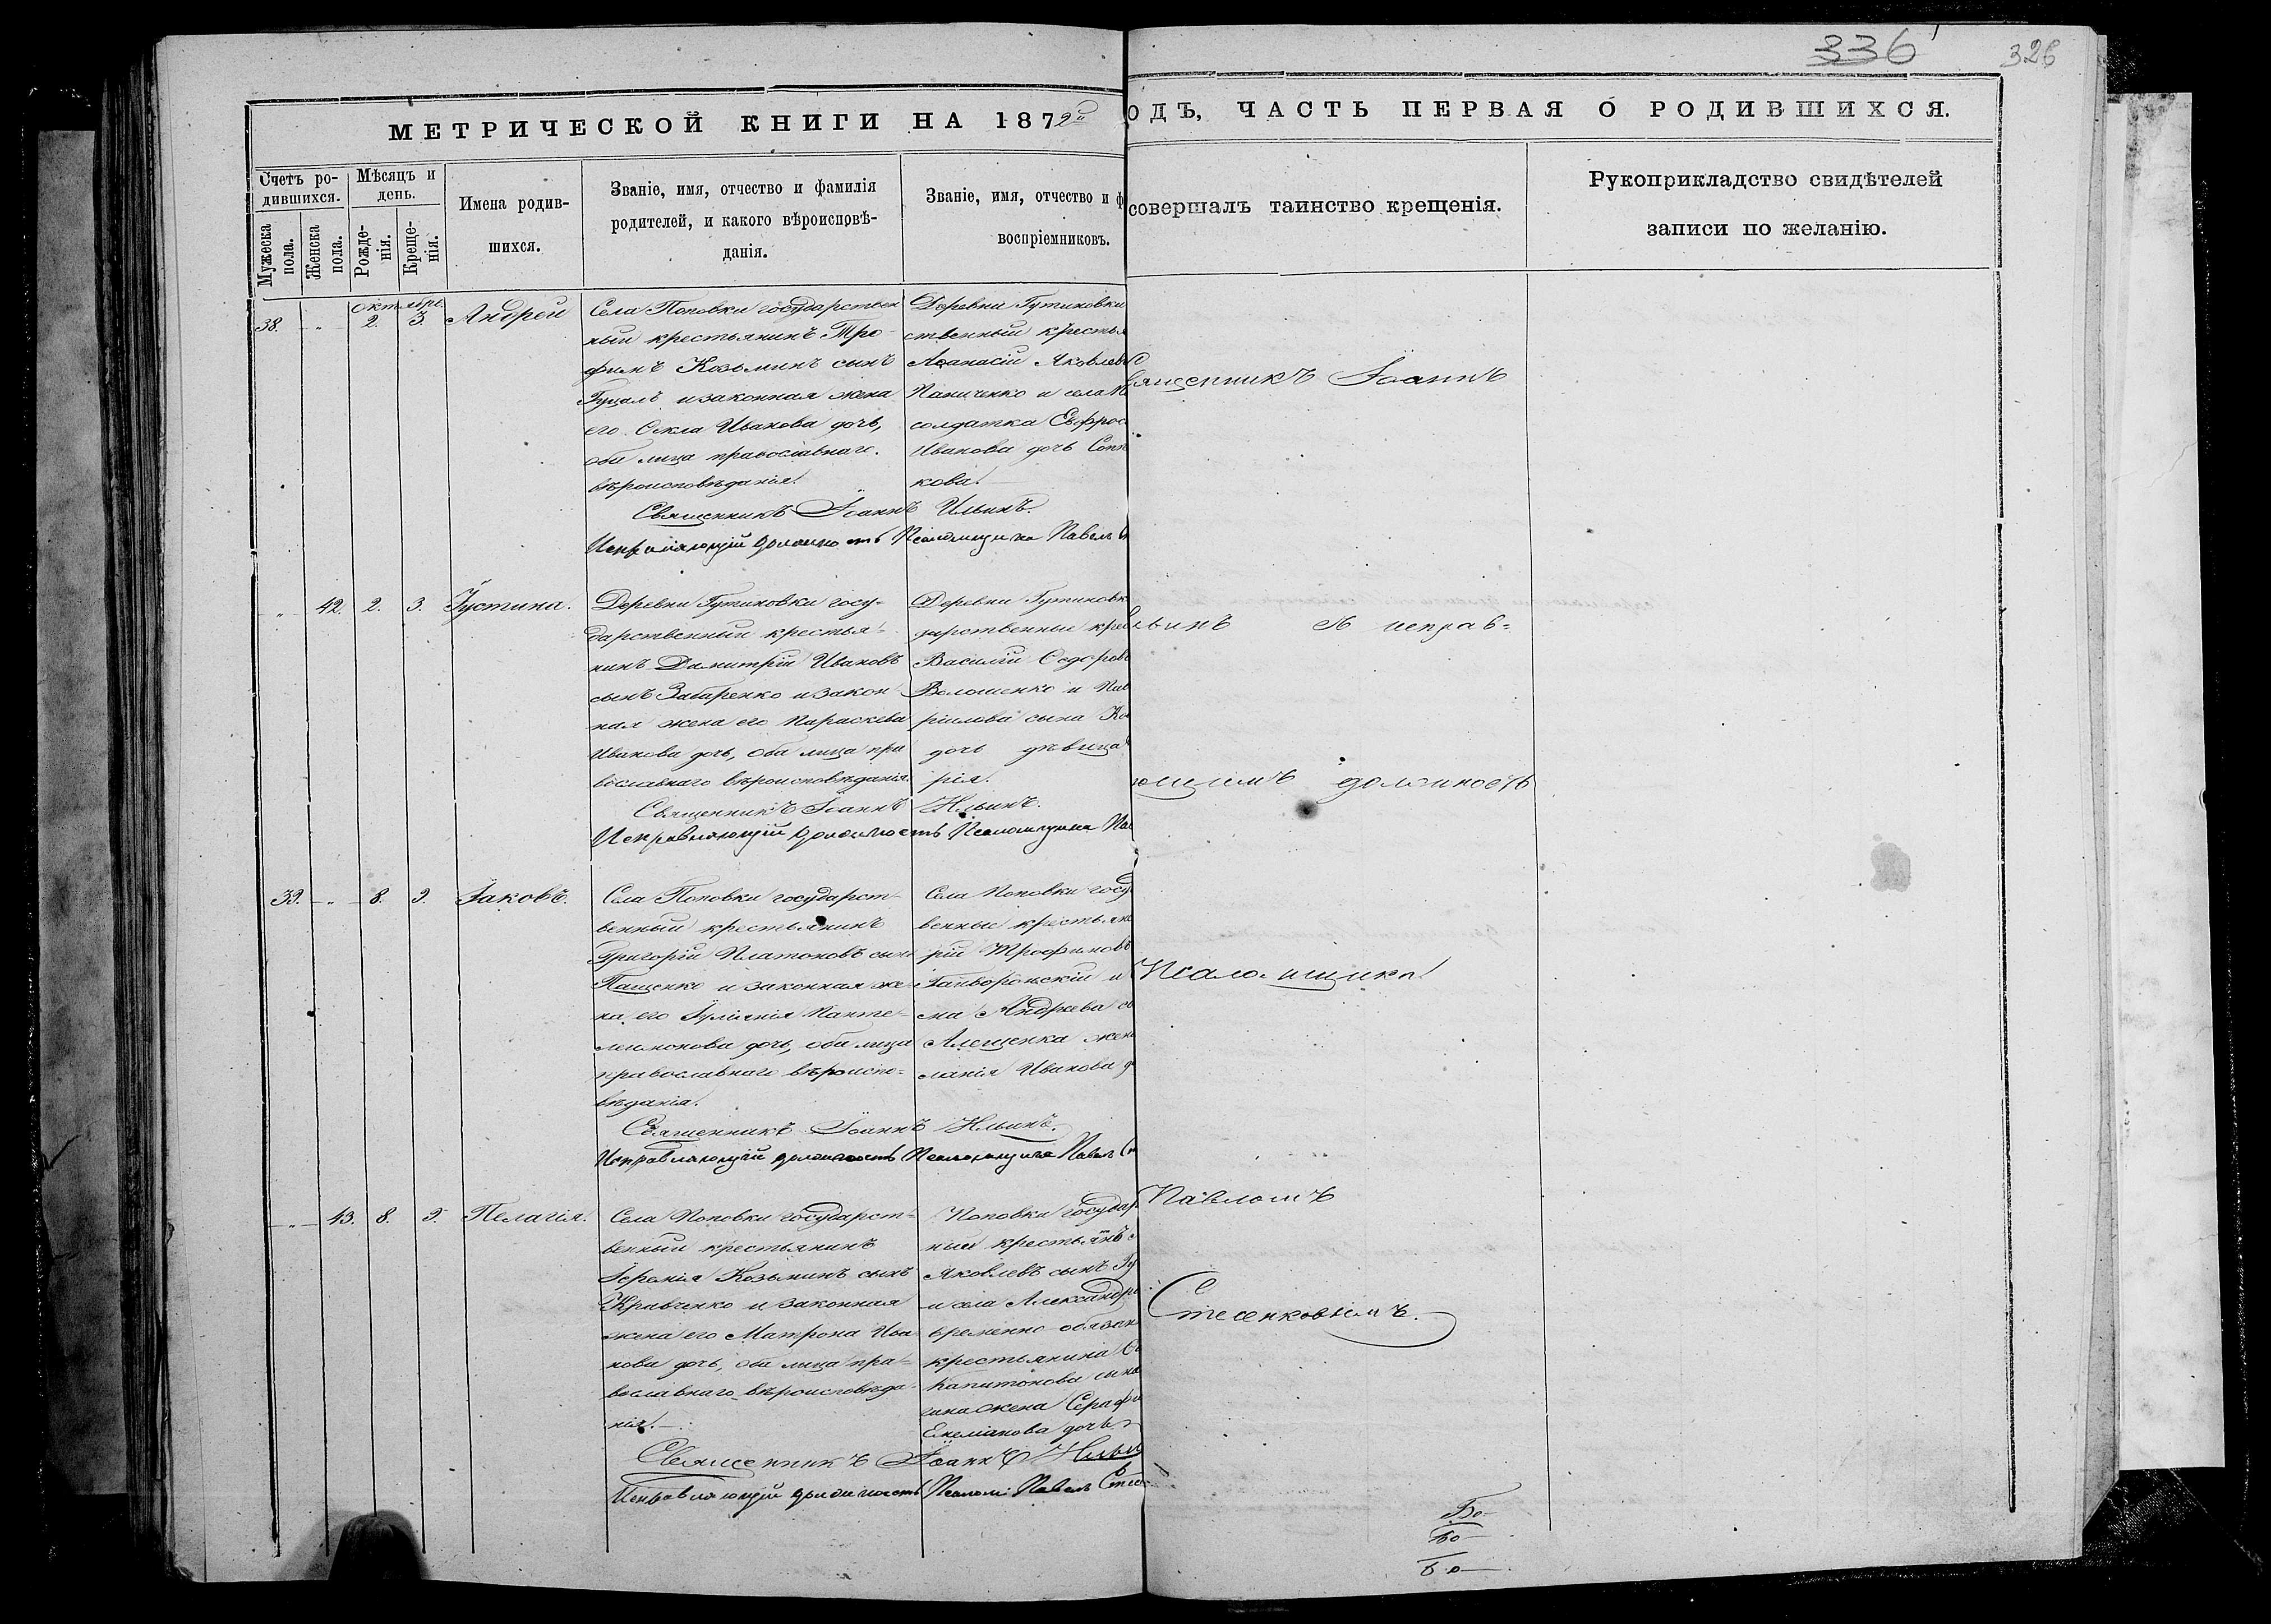 336
326
МЕТРИЧЕСКОЙ КНИГИ НА 1872й
ОДЪ, ЧАСТЬ ПЕРВАЯ О РОДИВШИХСЯ.
Счетъ ро-
дившихся.
Мужеска
пола.
Женска
пола.
Мѣсяцъ и
день.
Рожде-
нія.
Креще-
нія.
Имена родив-
шихся.
Званіе, имя, отчество и фамилія
родителей, и какого вѣроисповѣ-
данія.
Званіе, имя, отчество и ф
воспріемниковъ.
совершалъ таинство крещенія.
Рукоприкладство свидѣтелей
записи по желанію.
Октября
38. " 2. 3. Андрей
Села Поповки государствен
ный крестьянинъ Тро-
фимъ Козьминъ сынъ
Гуцалъ и законная жена
его Ѳекла Иванова дочь,
оба лица православнаго
вѣроисповѣданія.
Деревни Гутиковки
ственный крестья
Аѳанасій Яковлев
Паниченко и села
солдатка Евфрос
Иванова дочь
кова.
Священникъ Іоаннъ Ильинъ.
Исправляющій должность Псаломщика Павелъ
" 42. 2. 3. Іустина.
Деревни Гутиковки госу-
дарственный крестья-
нинъ Димитрій Ивановъ
сынъ и закон
ная жена его Параскева
Иванова дочь, оба лица пра
вославнаго вѣроисповѣданія.
Деревни Гутиковк
дарственный кре
Василій Ѳедоров
Волошенко и
ріилова сына
дочь дѣвица
рія.
Священникъ Іоаннъ Ильинъ.
Исправляющій должность Псаломщика Па
39. " 8. 9. Іаковъ.
Села Поповки государст-
венный крестьянинъ
Григорій Платоновъ сынъ
Пащенко и законная же-
на его Іуліанія Панте-
леимонова дочь, оба лица
православнаго вѣроиспо-
вѣданія.
Села Поповки госу
венные крестьян
рій Трофимовъ
Гайворонскій и
ма Андреева с
Алещенка жен
ланія Иванова д
Священникъ Іоаннъ Ильинъ.
Исправляющій должность Псаломщика Павелъ
" 43. 8. 9. Пелагія.
Села Поповки государст-
венный крестьянинъ
Іеремія Козьминъ сынъ
Кравченко и законная
жена его Матрона Ива
нова дочь, оба лица пра-
вославнаго вѣроисповѣда-
нія.
Поповки государ
ный крестьянъ
Яковлевъ сынъ Гу
и села Александро
временно обязан
крестьянина
Капитонова сына
жена Серафи
Емеліанова дочь
Священникъ Іоаннъ Ильи
Исправляющій должность Псалом: Павелъ Стесе
Священникъ Іоаннъ
льинъ съ исправ-
ющимъ должность
Псаломщика
Павломъ
Стесенковымъ.